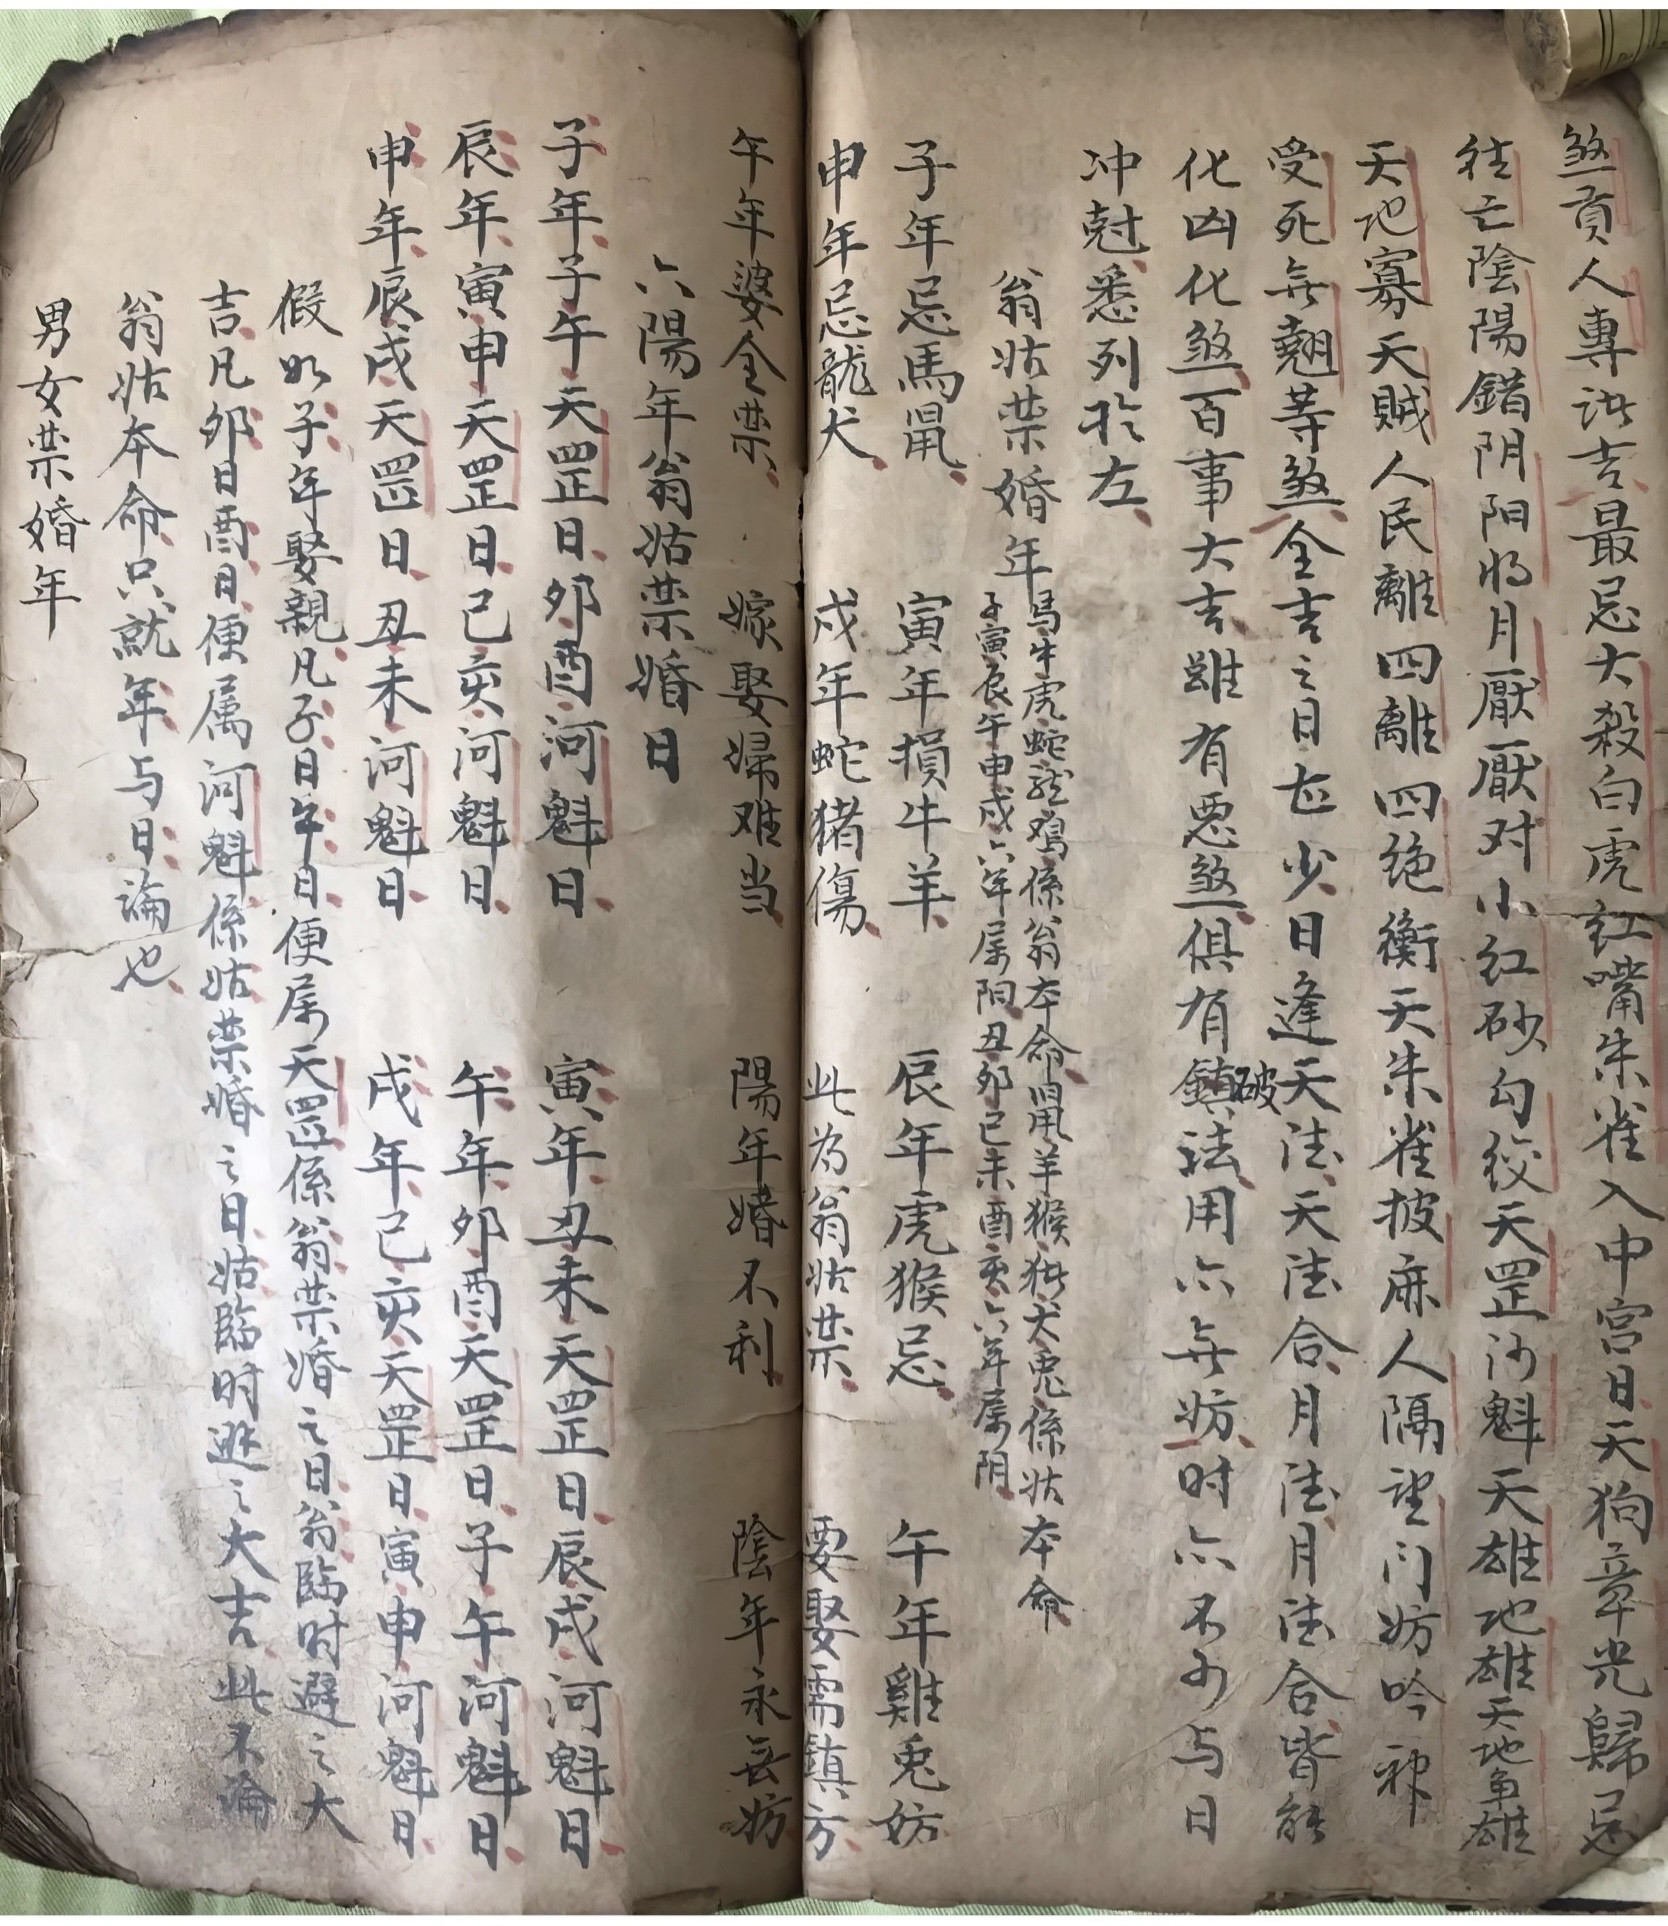 煞貢人專訨吉最忌大殺白虎紅嘴朱雀入中宮日天狗章光歸忌
往亡陰陽錯阴阳将月厭厭对小红砂勾绞天罡河魁天雄地雄天地争雄
天地寡天賊人民離四離四绝衡天朱雀披麻人隔望门妨吟神
受死无翹等煞全吉之日甚少日逢天法天法合月法月法合皆能
化凶化煞百事大吉雖有悪煞俱有鎮破法用六无妨时六不可与日
冲尅悉列於左
翁姑禁婚年
马牛虎蛇龍鸡係翁本命鼠羊猴猪犬兎係姑本命
子寅辰午申戌六年属阳丑卯巳未酉亥六年属阴
子年忌馬鼠 寅年損牛羊 辰年虎猴忌 午年雞兎妨
申年忌龍犬 戌年蛇猪傷 此为翁姑禁 要娶需鎮方
午年婆全禁 嫁娶婦难当 陽年婚不利 陰年永无妨
六陽年翁姑禁婚日
子年子午天罡日卯酉河魁日 寅年丑未天罡日辰戌河魁日
辰年寅申天罡日己亥河魁日 午年卯酉天罡日子午河魁日
申年辰戌天罡日丑未河魁日 戌年己亥天罡日寅申河魁日
假如子年娶親凡子日午日便属天罡係翁禁婚之日翁臨时避之大
吉凡卯日酉日便属河魁係姑禁婚之日姑臨时逊之大吉此不論
翁姑本命只就年与日論也
男女禁婚年